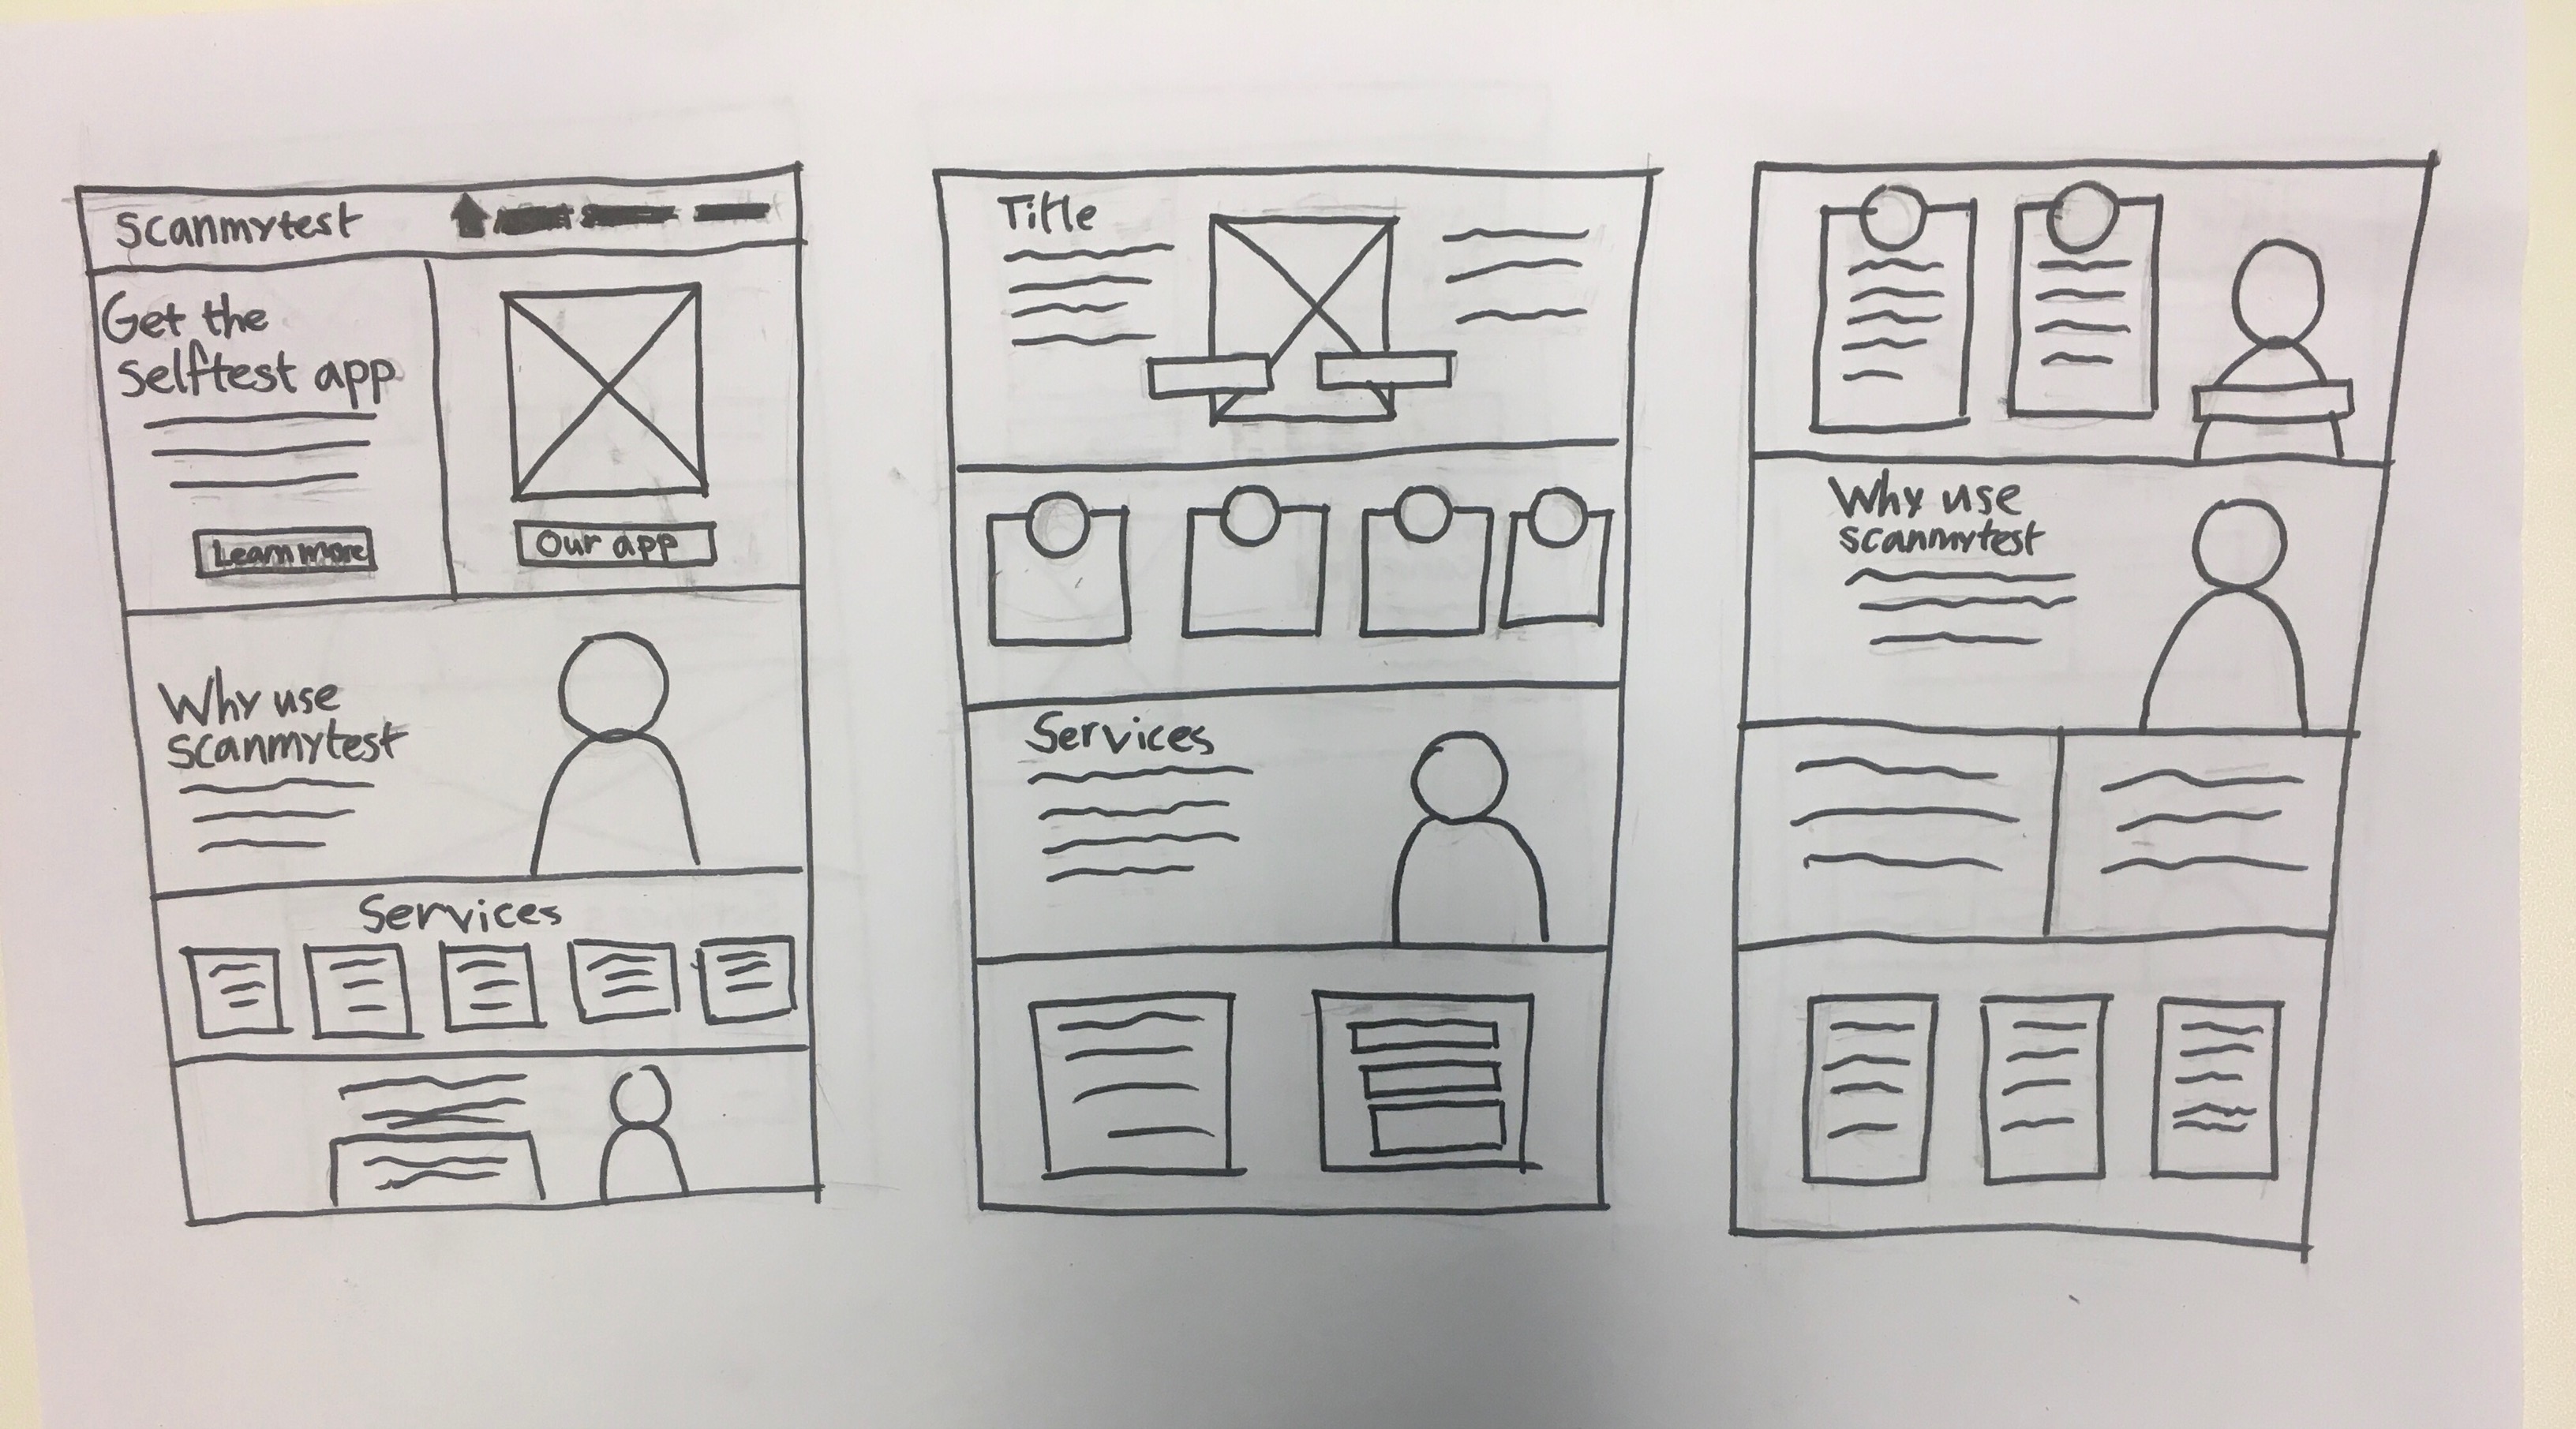 Scanmytest
Get the
selftest app
Learn more
Our app
Why use
scanmytest
Services
Title
Services
Why use
scanmytest